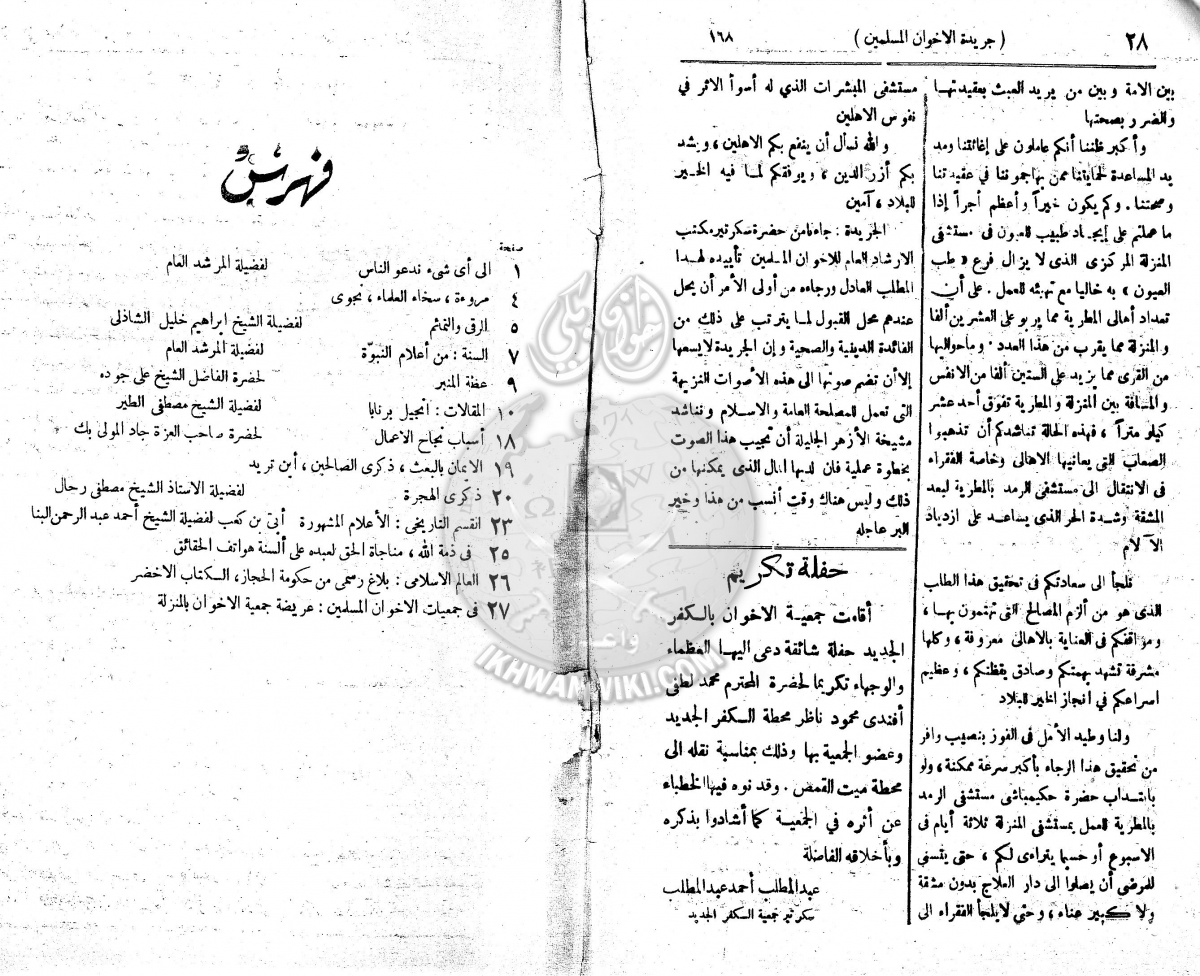 ٢٨
( جريدة الاخوان المسلمين )
١٦٨
بين الامة وبين من يريد العبث بعقيدتهـا
والضرر بصحتها
وأكبر ظننا أنكم عاملون على إغاثتنا ومد
يد المساعدة لحمايتنا ممن يهاجموننا في عقيدتنا
وصحتنا . وكم يكون خيراً وأعظم أجراً إذا
ما عملتم على إيجـاد طبيب للعيون فى مستشفى
المنزلة المركزى الذى لا يزال فرع « طب
العيون » به خاليا مع تهيئته للعمل . على أن
تعداد أهالى المطرية مما يربو على العشرين ألفا
والمنزلة مما يقرب من هذا العدد وماحواليها
من القرى مما يزيد على الستين ألفا من الانفس
والمسافة بين المنزلة والمطرية تفوق أحد عشر
كيلو متراً ، فهذه الحالة تناشدكم أن تذهبوا
الصعاب التى يعانيها الاهالى وخاصة الفقراء
فى الانتقال الى مستشفى الرمد بالمطرية لبعد
المشقة وشدة الحر الذى يساعد على ازدياد
الآلام
فلجأ الى سعادتكم فى تحقيق هذا الطلب
الذى هو من ألزم المصالح التى تهتمون بهـا ،
ومواقفكم فى العناية بالاهالى معروفة ، وكلها
مشرفة تشهد بهمتكم وصادق يقظتكم ، وعظيم
اسراعكم فى انجاز الخير للبلاد
ولنا وطيد الأمل فى الفوز بنصيب وافر
من تحقيق هذا الرجاء بأكبر سرعة ممكنة ، ولو
بانتـداب حضرة حكيمباشى مستشفى الرمد
بالمطرية للعمل بمستشفى المنزلة ثلاثة أيام فى
الاسبوع أو حسبما يتراءى لكم ، حتى يتسنى
للمرضى أن يصلوا الى دار العلاج بدون مشقة
ولا كبير عناء ، وحتى لا يلجأ الفقراء الى
مستشفى المبشرات الذي له أسوأ الاثر في
نفوس الاهلين
والله نسأل أن ينفع بكم الاهلين ، ويشد
بكم أزر الدين ، ويوفقكم لمـا فيه الخـير
للبلاد ، آمين
الجريدة : جاءنا من حضرة سكرتير مكتب
الارشاد العام للاخوان المسلمين تأييده لهـذا
المطلب العادل ورجاءه من أولى الأمر أن يحل
عندهم محل القبول لما يترتب على ذلك من
الفائدة الدينية والصحية وإن الجريدة لا يسعها
إلا أن تضم صوتها الى هذه الأصوات النزيهة
التى تعمل للمصلحة العامة والاسلام وتناشد
مشيخة الأزهر الجليلة أن تجيب هذا الصوت
بخطوة عملية فان لديها المال الذى يمكنها من
ذلك وليس هناك وقت أنسب من هذا وخير
البر عاجله
حفلة تكريم
أقامت جمعية الاخوان بالكفر
الجديد حفلة شائقة دعى اليهـا العظماء
والوجهاء تكريما لحضرة المحترم محمد لطفى
أفندى محمود ناظر محطة الكفر الجديد
وعضو الجمعية بها وذلك بمناسبة نقله الى
محطة ميت القمص . وقد نوه فيها الخطباء
عن أثره في الجمعية كما أشادوا بذكره
وبأخلاقه الفاضلة
عبد المطلب أحمد عبد المطلب
سكرتير جمعية الكفر الجديد
فهرس
صفحة
١ الى أى شىء ندعو الناس لفضيلة المرشد العام
٤ مروءة ، سخاء العلماء ، نجوى
٥ الرقى والتمائم لفضيلة الشيخ ابراهيم خليل الشاذلى
٧ السنة : من أعلام النبوّة لفضيلة المرشد العام
٩ عظة المنبر لحضرة الفاضل الشيخ على جوده
١٠ المقالات : انجيل برنابا لفضيلة الشيخ مصطفى الطير
١٨ أسباب نجاح الاعمال لحضرة صاحب العزة جاد المولى بك
١٩ الايمان بالبعث ، ذكرى الصالحين ، أين تريد
٢٠ ذكرى الهجرة لفضيلة الاستاذ الشيخ مصطفى رحال
٢٣ القسم التاريخى : الأعلام المشهورة أبىّ بن كعب لفضيلة الشيخ أحمد عبد الرحمن البنا
٢٥ فى ذمة الله ، مناجاة الحق لعبده على ألسنة هواتف الحقائق
٢٦ العالم الاسلامى : بلاغ رسمى من حكومة الحجاز، الكتاب الاخضر
٢٧ فى جمعيات الاخوان المسلمين : عريضة جمعية الاخوان بالمنزلة
إخوان ويكي
وأعدوا
IKHWANWIKI.COM